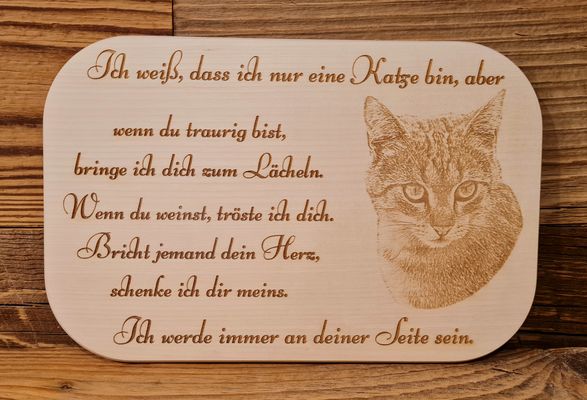 Ich weiß, dass ich nur eine Katze bin, aber
wenn du traurig bist,
bringe ich dich zum Lächeln.
Wenn du weinst, tröste ich dich.
Bricht jemand dein Herz,
schenke ich dir meins.
Ich werde immer an deiner Seite sein.